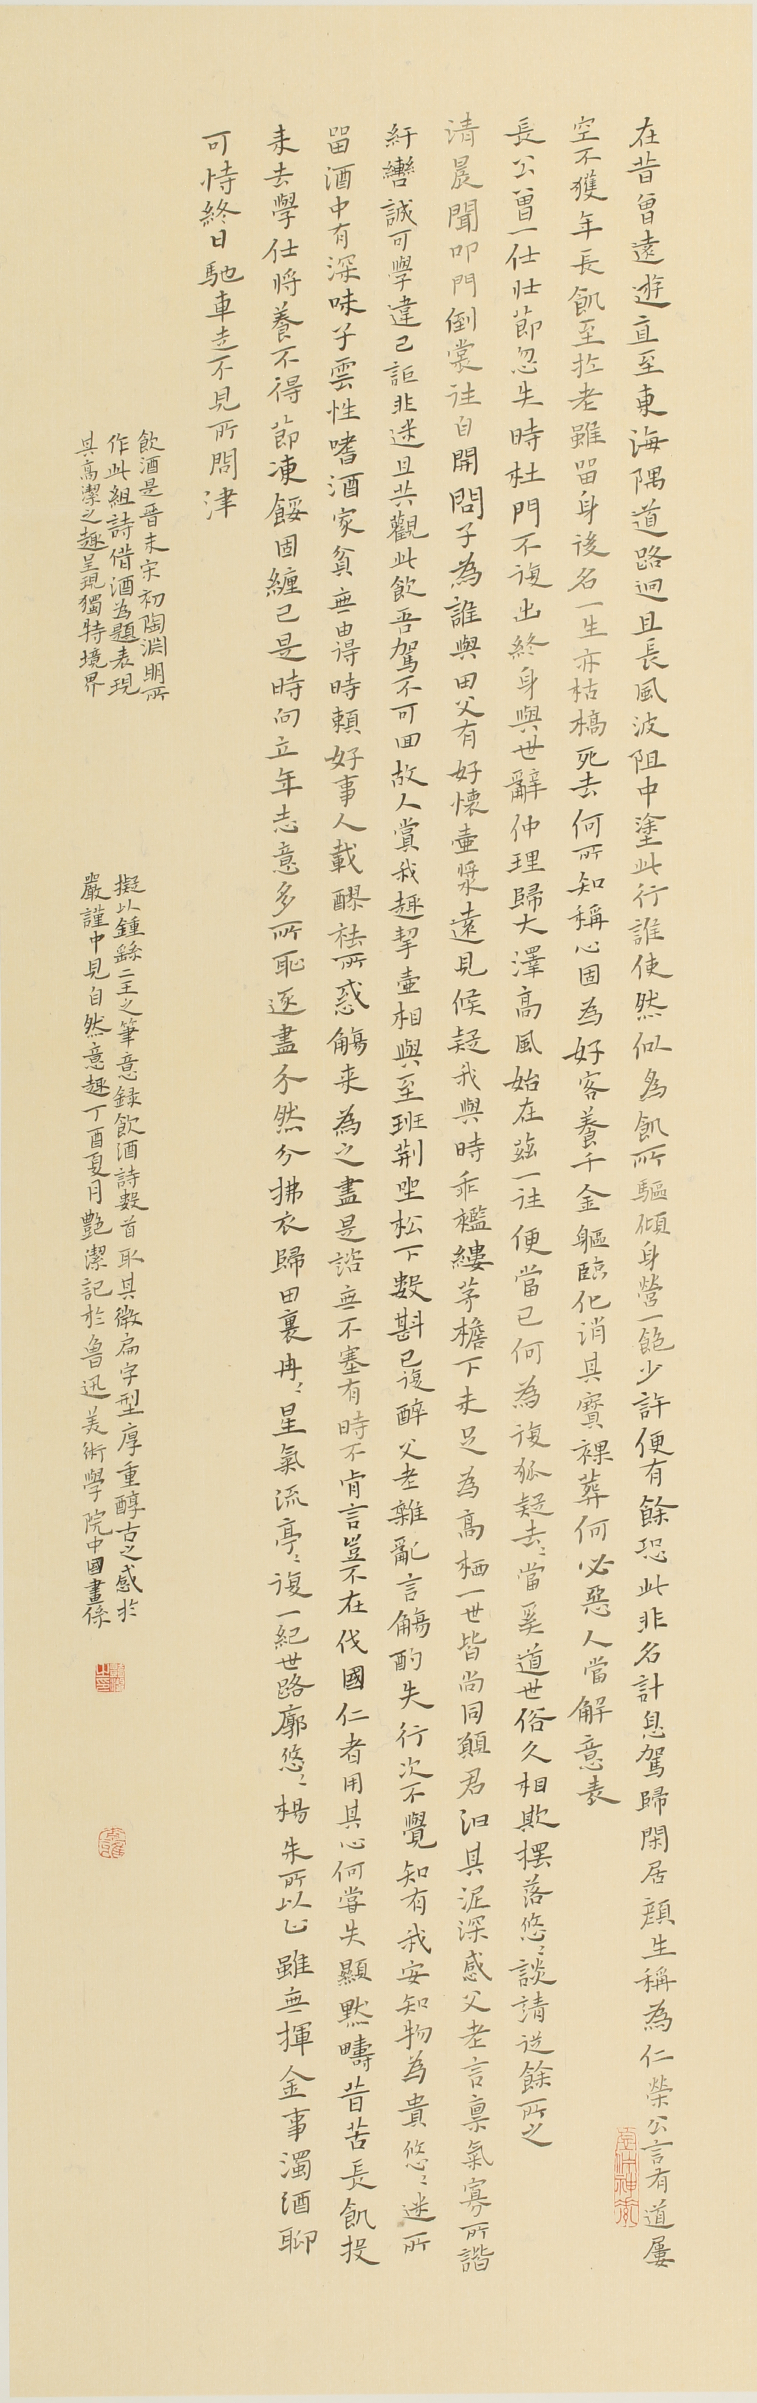 在昔曾遠遊直至東海隅道路迥且長風波阻中塗此行誰使然似為飢所驅傾身營一飽少許便有餘恐此非名計息駕歸閑居顏生稱為仁榮公言有道屢
空不獲年長飢至於老雖留身後名一生亦枯槁死去何所知稱心固為好客養千金軀臨化消其寶裸葬何必惡人當解意表
長公曾一仕壯節忽失時杜門不復出終身與世辭仲理歸大澤高風始在茲一往便當已何為復狐疑去〻當奚道世俗久相欺擺落悠〻談請從餘所之
清晨聞叩門倒裳往自開問子為誰與田父有好懷壺漿遠見候疑我與時乖襤縷茅檐下未足為高栖一世皆尚同願君汩其泥深感父老言禀氣寡所諧
紆轡誠可學違己詎非迷且共觀此飲吾駕不可回故人賞我趣挈壺相與至班荆坐松下數斟已復醉父老雜亂言觴酌失行次不覺知有我安知物為貴悠〻迷所
留酒中有深味子雲性嗜酒家貧無由得時賴好事人載醪祛所惑觴来為之盡是諮無不塞有時不肯言豈不在伐國仁者用其心何嘗失顯默疇昔苦長飢投
耒去學仕將養不得節凍餒固纏己是時向立年志意多所恥遂盡介然分拂衣歸田裏冉〻星氣流亭〻復一紀世路廓悠〻楊朱所以止雖無揮金事濁酒聊
可恃終日馳車走不見所問津
飲酒是晋末宋初陶淵明所
作此組詩借酒為題表現
其高潔之趣呈現獨特境界
擬以鍾繇二王之筆意録飲酒詩數首取其微扁字型厚重醇古之感於
嚴謹中見自然意趣丁酉夏月艷潔記於魯迅美術學院中國畫係